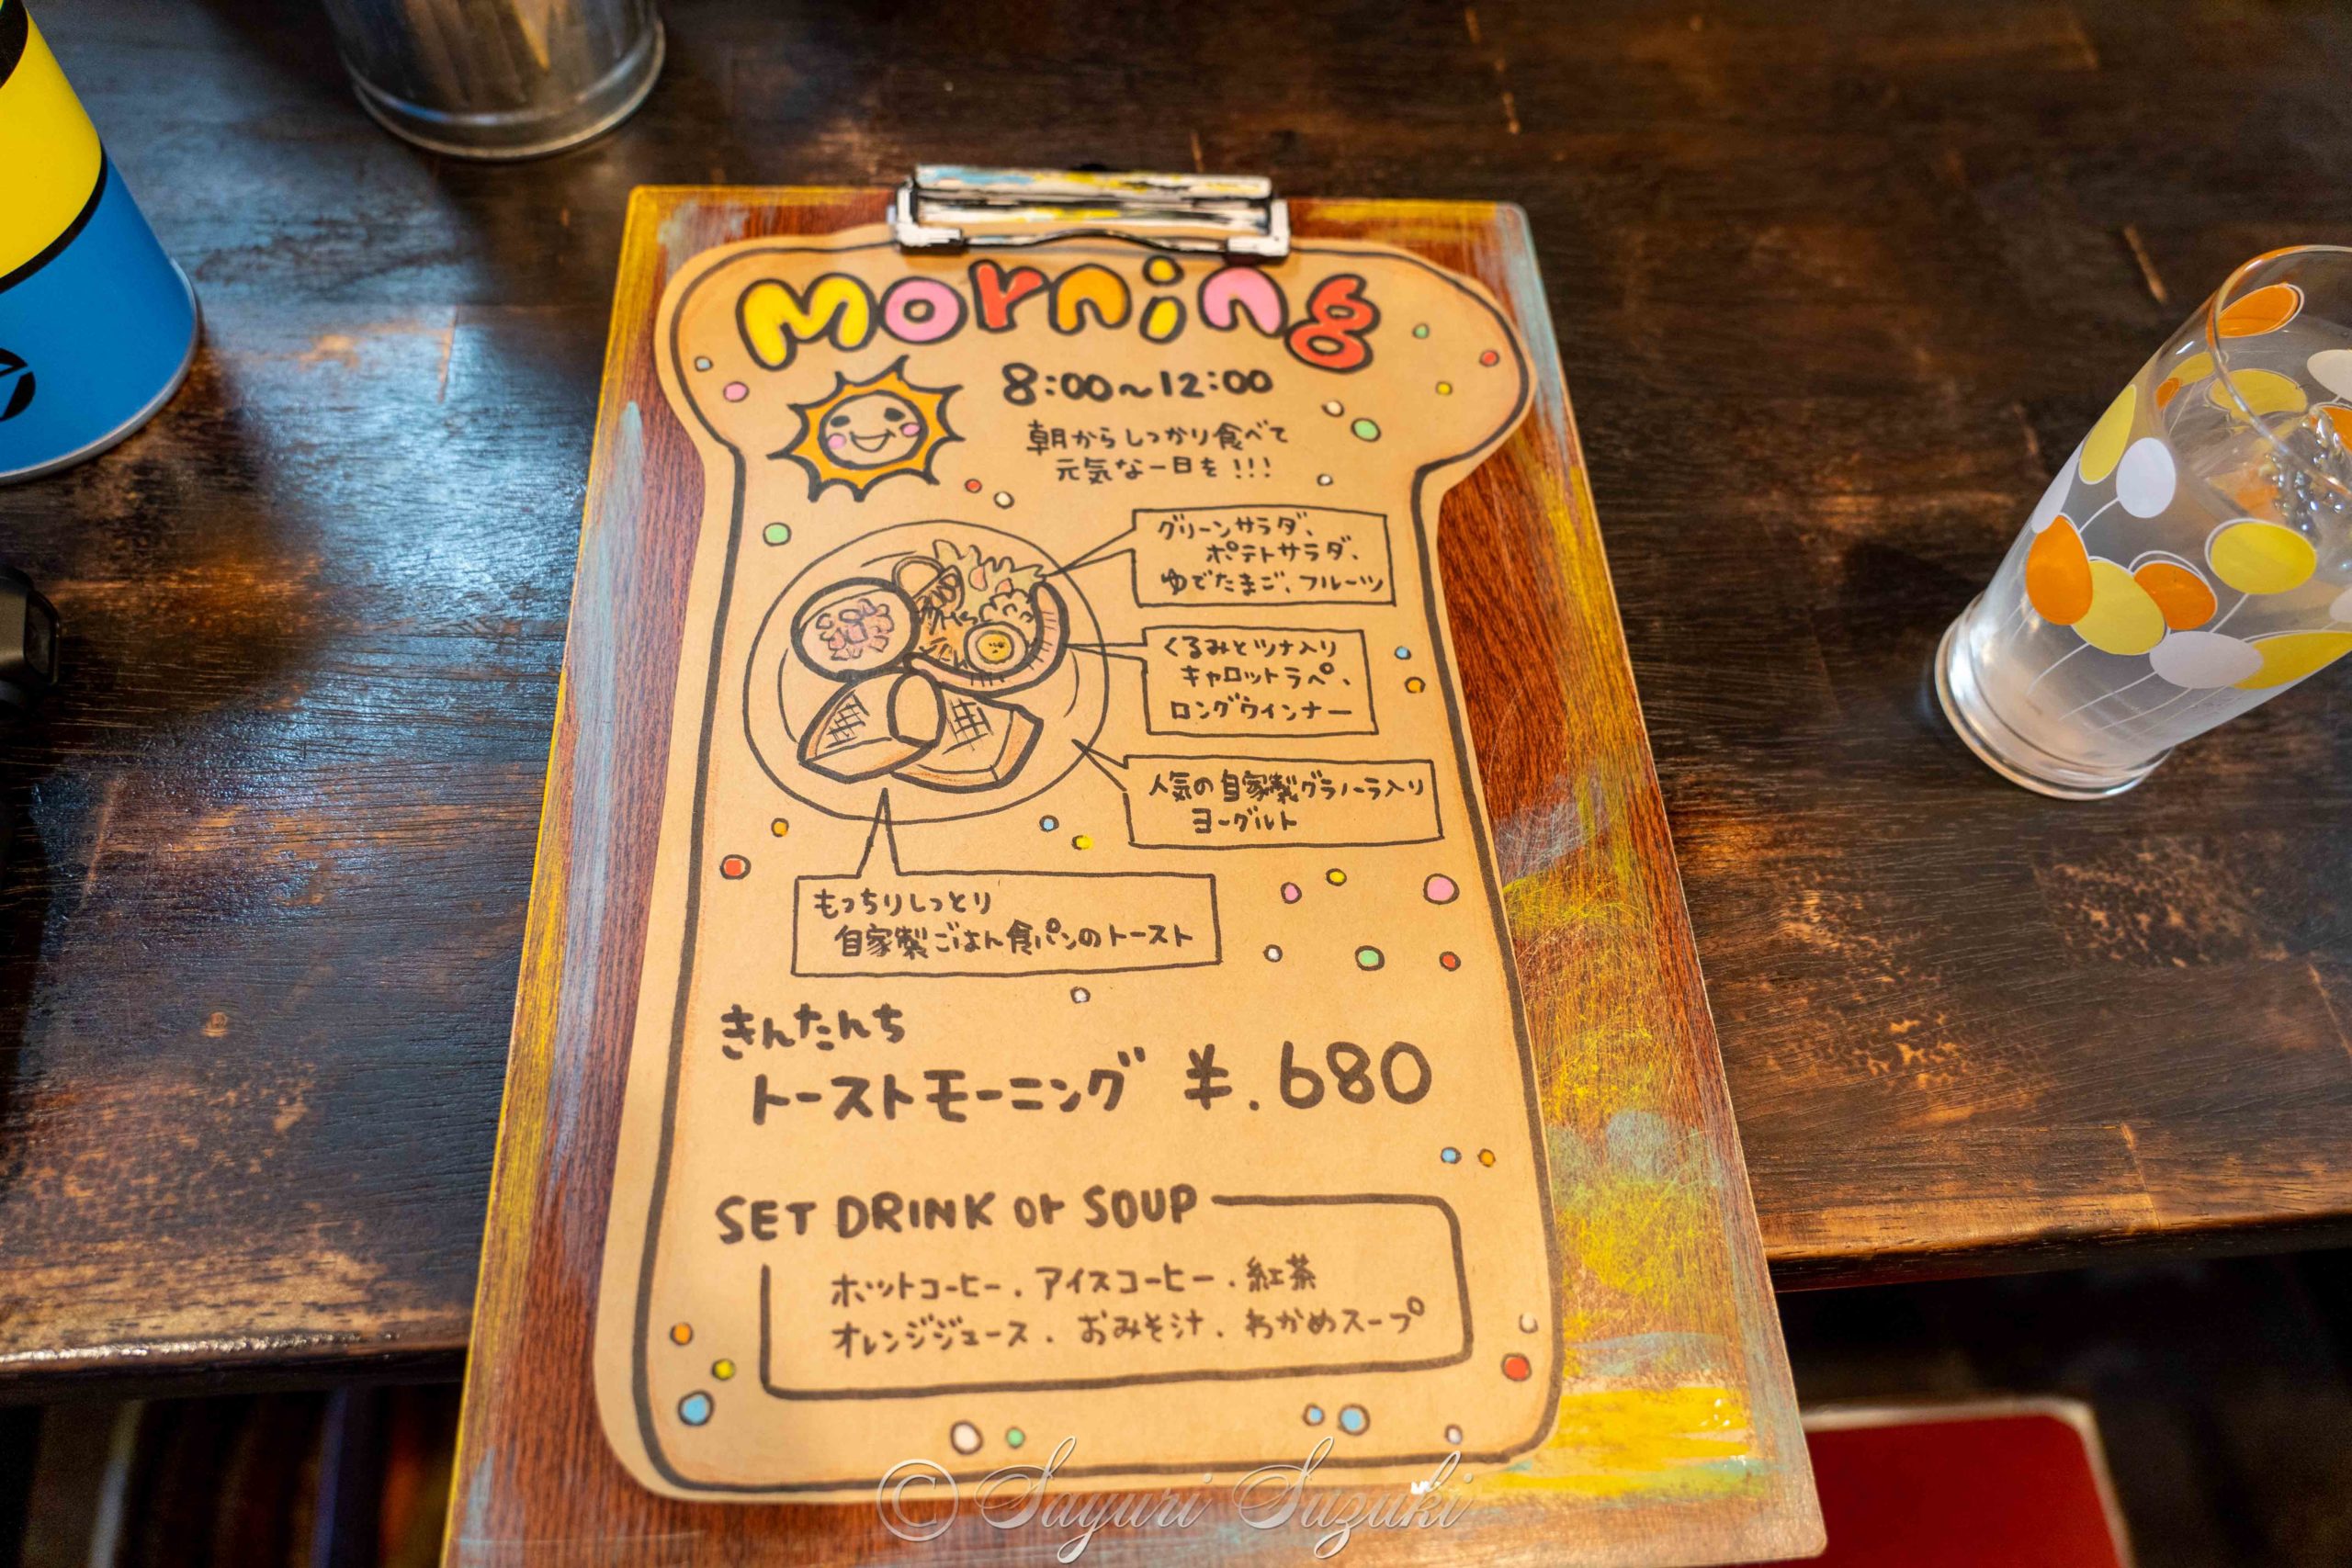 Morning
8:00~12:00
朝からしっかり食べて
元気な一日を!!!
グリーンサラダ、
ポテトサラダ、
ゆでたまご、フルーツ
くるみとツナ入り
キャロットラペ、
ロングウインナー
人気の自家製グラノーラ入り
ヨーグルト
もっちりしっとり
自家製ごはん食パンのトースト
きんたんち
トーストモーニング ¥.680
SET DRINK or SOUP
ホットコーヒー.アイスコーヒー.紅茶
オレンジジュース.おみそ汁.わかめスープ
© Sayuri Suzuki